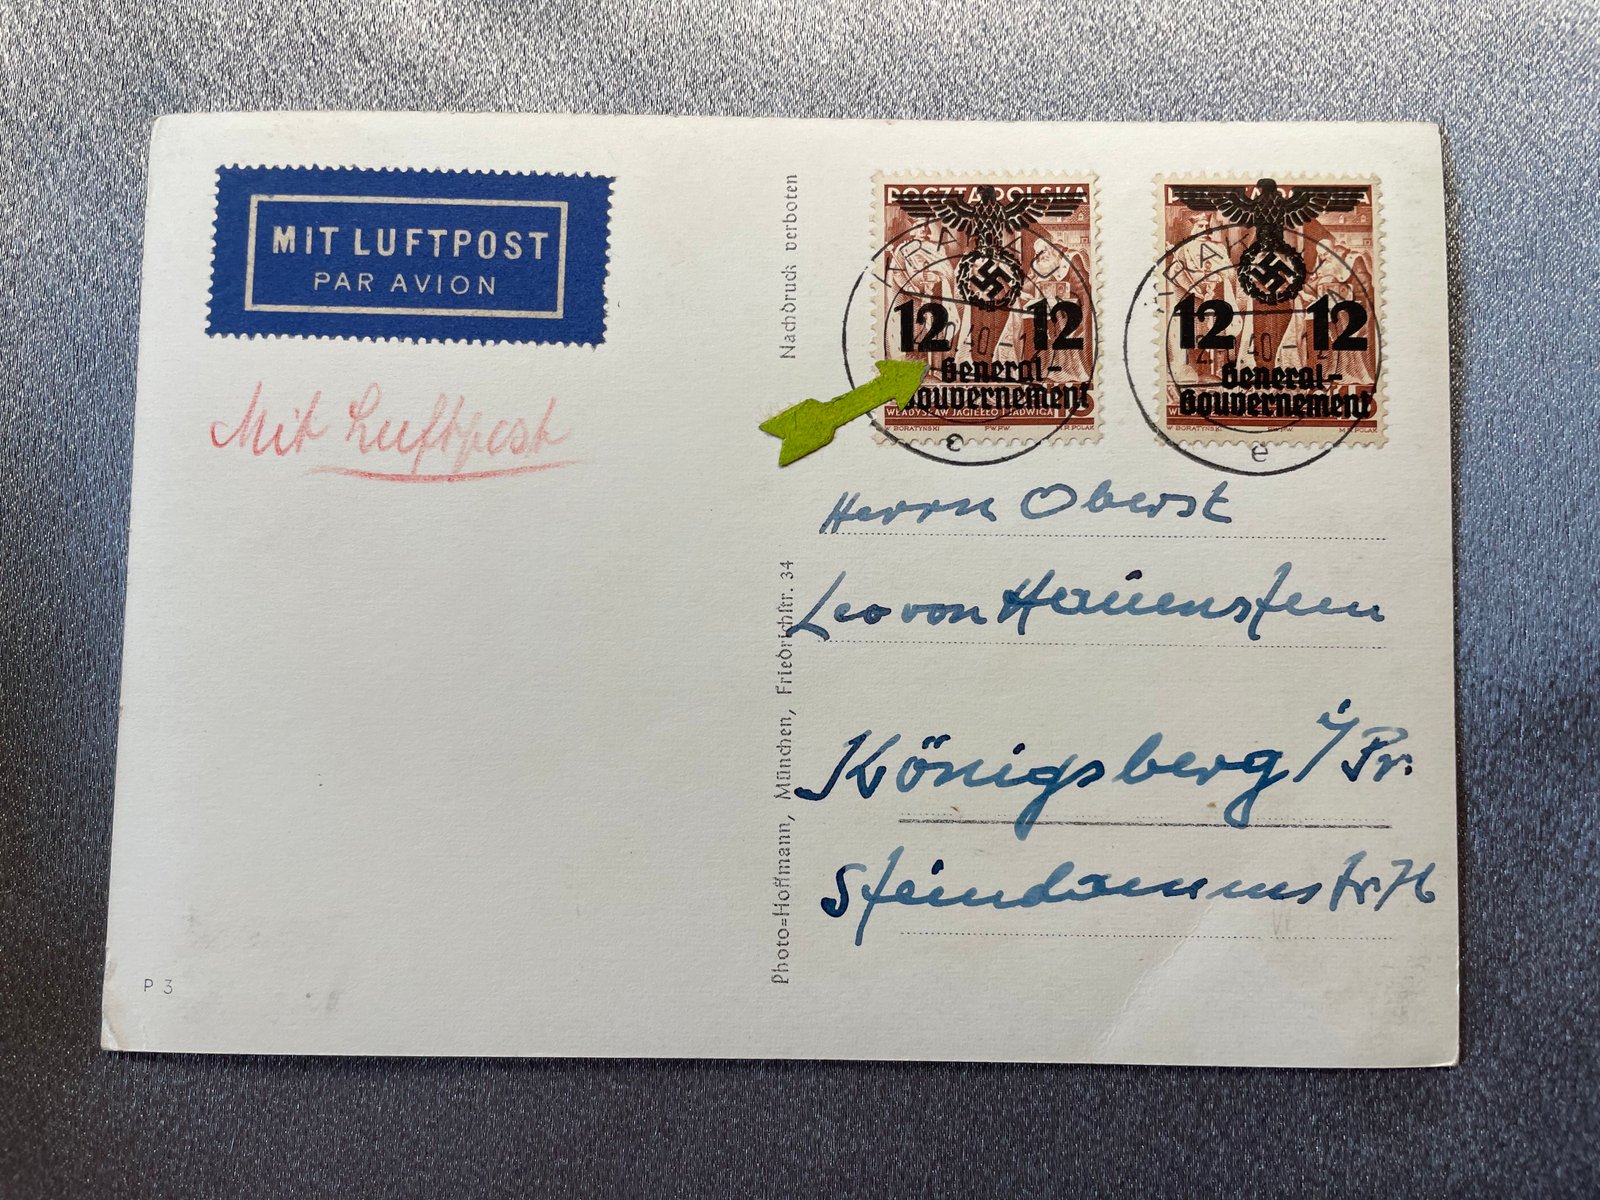 MIT LUFTPOST
PAR AVION
Mit Luftpost
P 3
Nachdruck verboten
Photo=Hoffmann, München, Friedrichstr. 34
POCZTA POLSKA
KRAKAU
12 12
40-12
General-
Gouvernement
WŁADYSŁAW JAGIEŁŁO I JADWIGA 15
W. BORATYŃSKI P.W.P.W. M.R. POLAK
c
KRAKAU
12 12
40-12
General-
Gouvernement
15
W. BORATYŃSKI P.W.P.W. POLAK
e
Herrn Oberst
Leo von Hauenstein
Königsberg i/Pr.
Steindammstr.